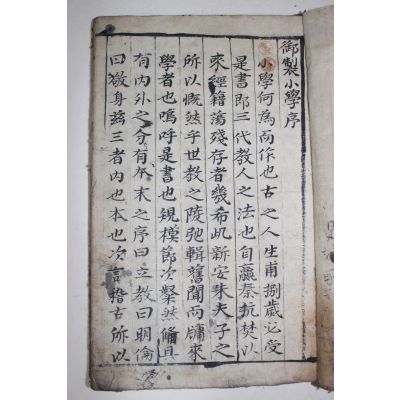 御製小學序
小學何爲而作也古之人生甫捌歲必受
是書即三代教人之法也自嬴秦坑焚以
來經籍蕩殘存者幾希此新安朱夫子之
所以慨然乎世教之陵弛輯舊聞而牖來
學者也嗚呼是書也規模節次粲然備具
有內外之分有本末之序曰立教曰明倫
曰敬身玆三者內也本也次言稽古所以